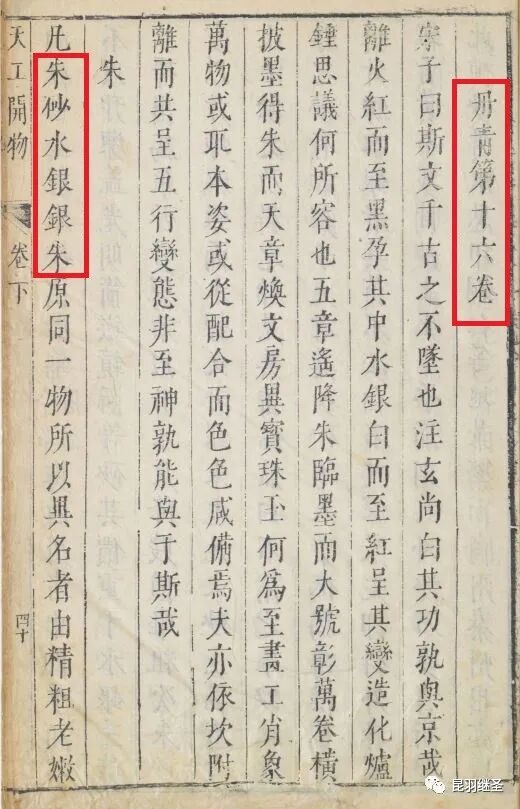 丹青第十六卷
宋子曰斯文千古之不墜也注玄尚白其功孰與京哉
離火紅而至黑孕其中水銀白而至紅呈其變造化爐
錘思議何所容也五章遙降朱臨墨而大號彰萬卷橫
披墨得朱而天章煥文房異寶珠玉何為至畫工肖象
萬物或取本姿或從配合而色色咸備焉夫亦依坎附
離而共呈五行變態非至神孰能與于斯哉
朱
凡朱砂水銀銀朱原同一物所以異名者由精粗老嫩
天工開物
卷下
四十
昆羽继圣